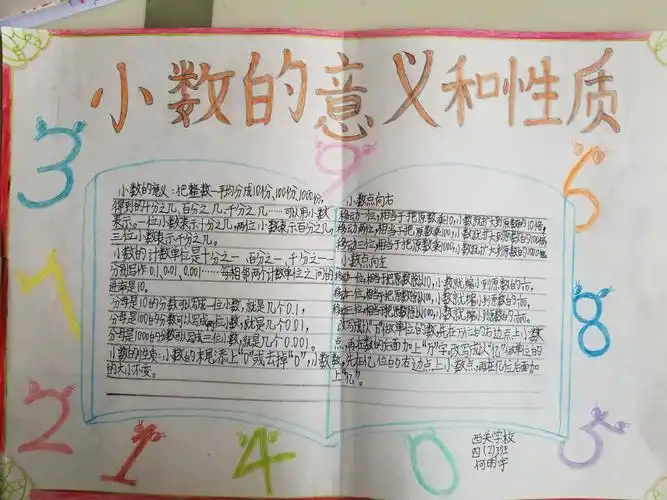 小数的意义和性质
小数的意义：把整数一平均分成10份、100份、1000份，
得到的十分之几、百分之几、千分之几……可以用小数
表示。一位小数表示十分之几，两位小数表示百分之几，
三位小数表示千分之几。
小数的计数单位是十分之一、百分之一、千分之一
分别写作0.1、0.01、0.001……每相邻两个计数单位之间的
进率是10。
分母是10的分数可以写成一位小数，就是几个0.1，
分母是100的分数可以写成两位小数，就是几个0.01，
分母是1000的分数可以写成三位小数，就是几个0.001。
小数的性质：小数的末尾添上“0”或去掉“0”，小数
的大小不变。
小数点向右
移动一位，相当于把原数乘10，小数就扩大到原数的10倍，
移动两位，相当于把原数乘100，小数就扩大到原数的100倍，
移动三位，相当于把原数乘1000，小数就扩大到原数的1000倍
小数点向左
移动一位，相当于把原数除以10，小数就缩小到原数的
相当于把原数除以100，小数就缩小到原数的
相当于把原数除以1000，小数就缩小到原数的
改写成以“万”做单位的数，先在万位的右边点上小数
点，再在数的后面加上“万”字，改写成以“亿”做单位的
数，先在亿位的右边点上小数点，再在亿位后面加
上“亿”。
3
9
6
7
8
2
1
4
0
5
西关学校
四(2)班
何明宇